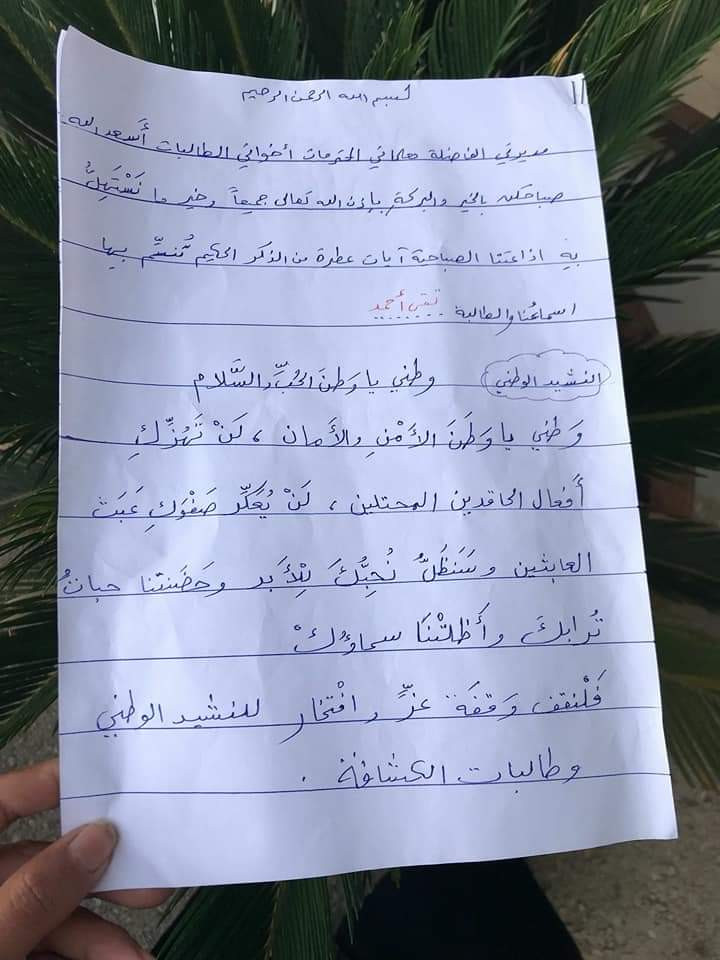 بسم الله الرحمن الرحيم
مديرتي الفاضلة معلماتي المحترمات أخواتي الطالبات أَسعد الله
صباحكن بالخير والبركة بإذن الله تعالى جميعاً وخير ما نَسْتَهِلُّ
بهِ اذاعتنا الصباحية آيات عطرة من الذكر الحكيم تُنسِّم بها
اسماعُنا والطالبة تقى أحمد
النشيد الوطني وطني يا وطنَ الحُبِّ والسَّلام
وَطني يا وَطَنَ الأَمْنِ والأمان ، لَنْ تَهُزِّكِ
أَفعال الحاقدين المحتلين ، لَنْ يُعَكِّر صَفْوَكِ عَبَث
العابثين وسَنَظَلُّ نُحِبُّكَ لِلْأَبد وحَضَنتنا حباتُ
تُرابكَ وأَظلتْنَا سماؤكْ
فَلْنقف وَقفَة عزٍّ وافْتخار للنشيد الوطني
وطالبات الكشافة .